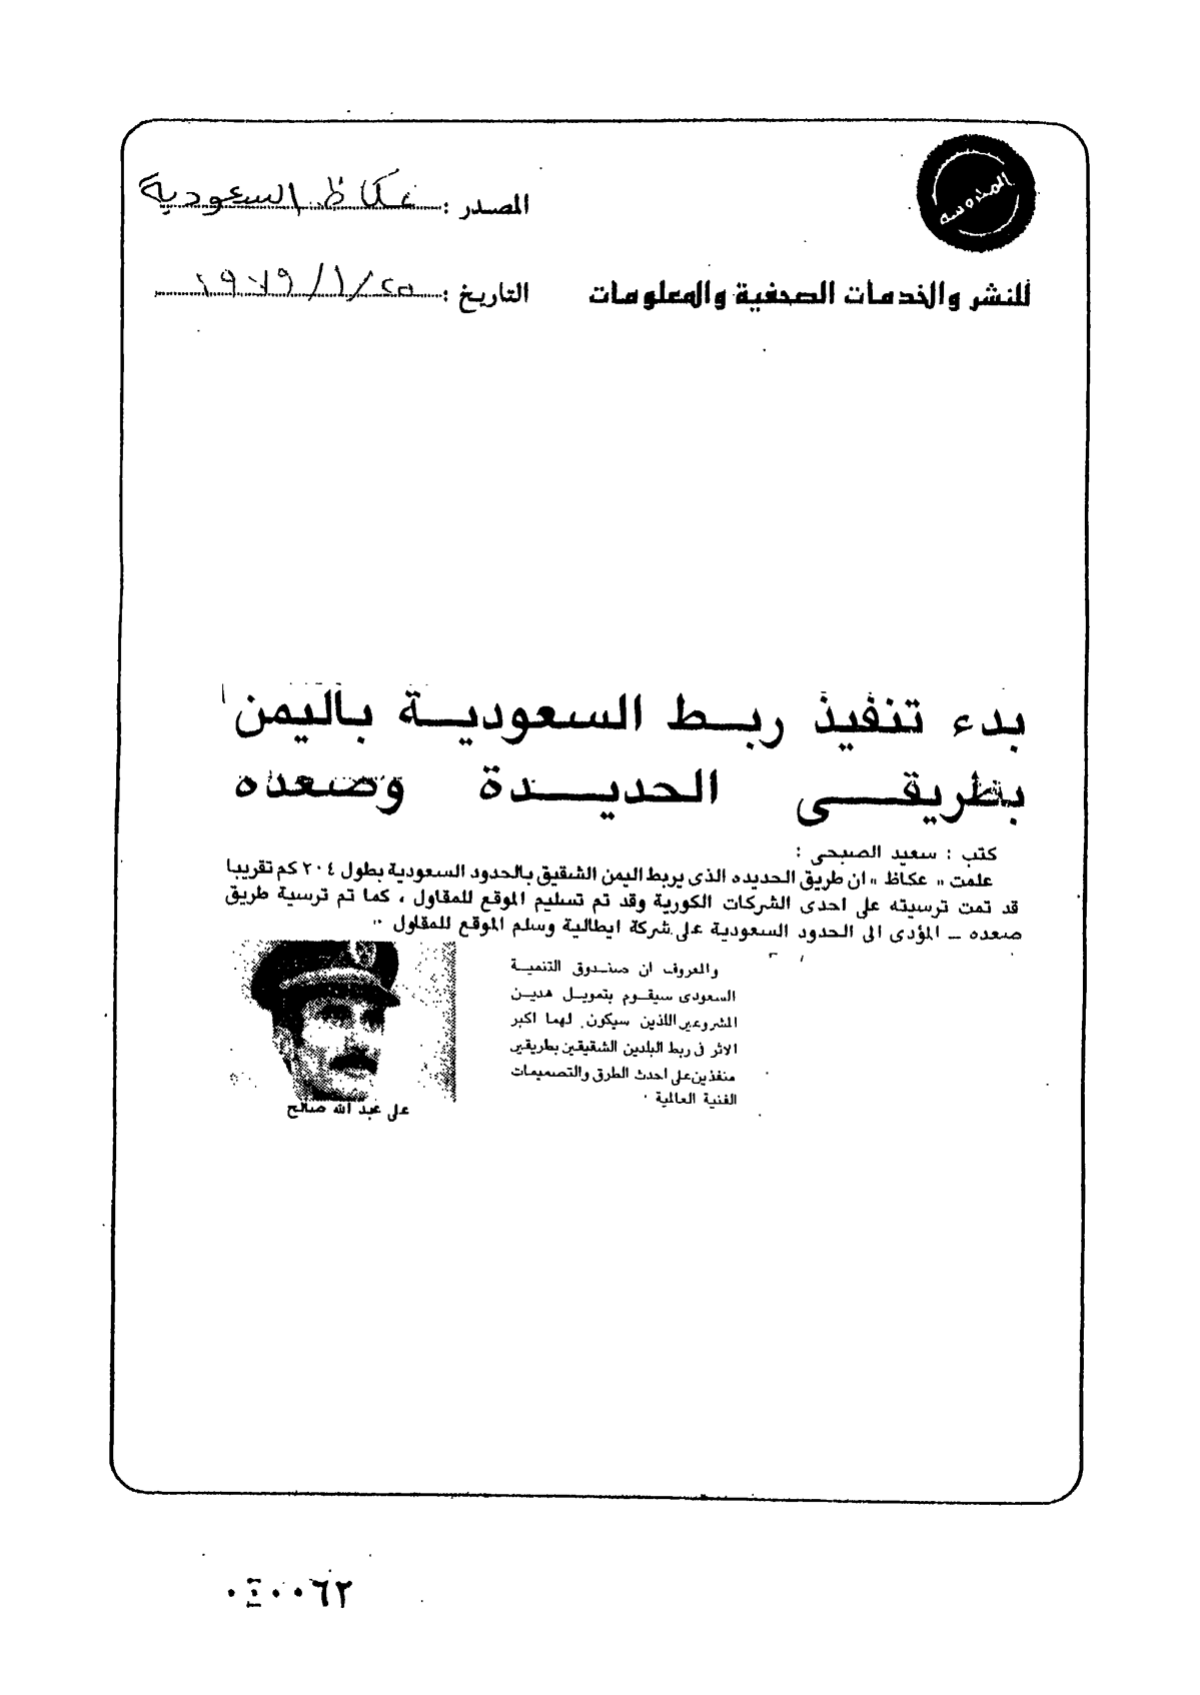 المحروسة
المصدر : عكاظ السعودية
للنشر والخدمات الصحفية والمعلومات
التاريخ : ٢٥/ ١/ ١٩٧٩
بدء تنفيذ ربط السعودية باليمن
بطريقى الحديدة وصعده
كتب : سعيد الصبحى :
علمت « عكاظ » ان طريق الحديده الذى يربط اليمن الشقيق بالحدود السعودية بطول ٢٠٤ كم تقريبا
قد تمت ترسيته على احدى الشركات الكورية وقد تم تسليم الموقع للمقاول ، كما تم ترسية طريق
صعده ــ المؤدى الى الحدود السعودية على شركة ايطالية وسلم الموقع للمقاول ٠٠
والمعروف ان صندوق التنمية
السعودى سيقوم بتمويل هدين
المشروعين اللذين سيكون لهما اكبر
الاثر فى ربط البلدين الشقيقين بطريقين
منفذين على احدث الطرق والتصميمات
الفنية العالمية ٠
على عبد الله صالح